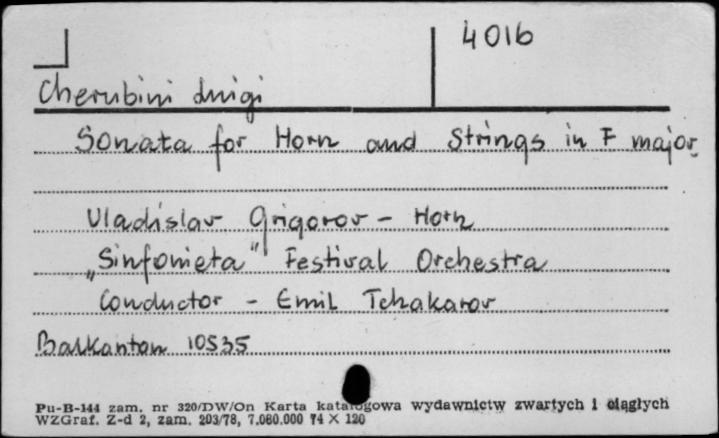 4016
Cherubini Luigi
Sonata for Horn and Strings in F major
Vladislav Grigorov - Horn
„Sinfonieta" Festival Orchestra
Conductor - Emil Tchakarov
Balkanton 10535
Pu-B-144 zam. nr 320/DW/On Karta katalogowa wydawnictw zwartych i ciągłych
WZGraf. Z-d 2, zam. 203/78, 7.080.000 74 X 120